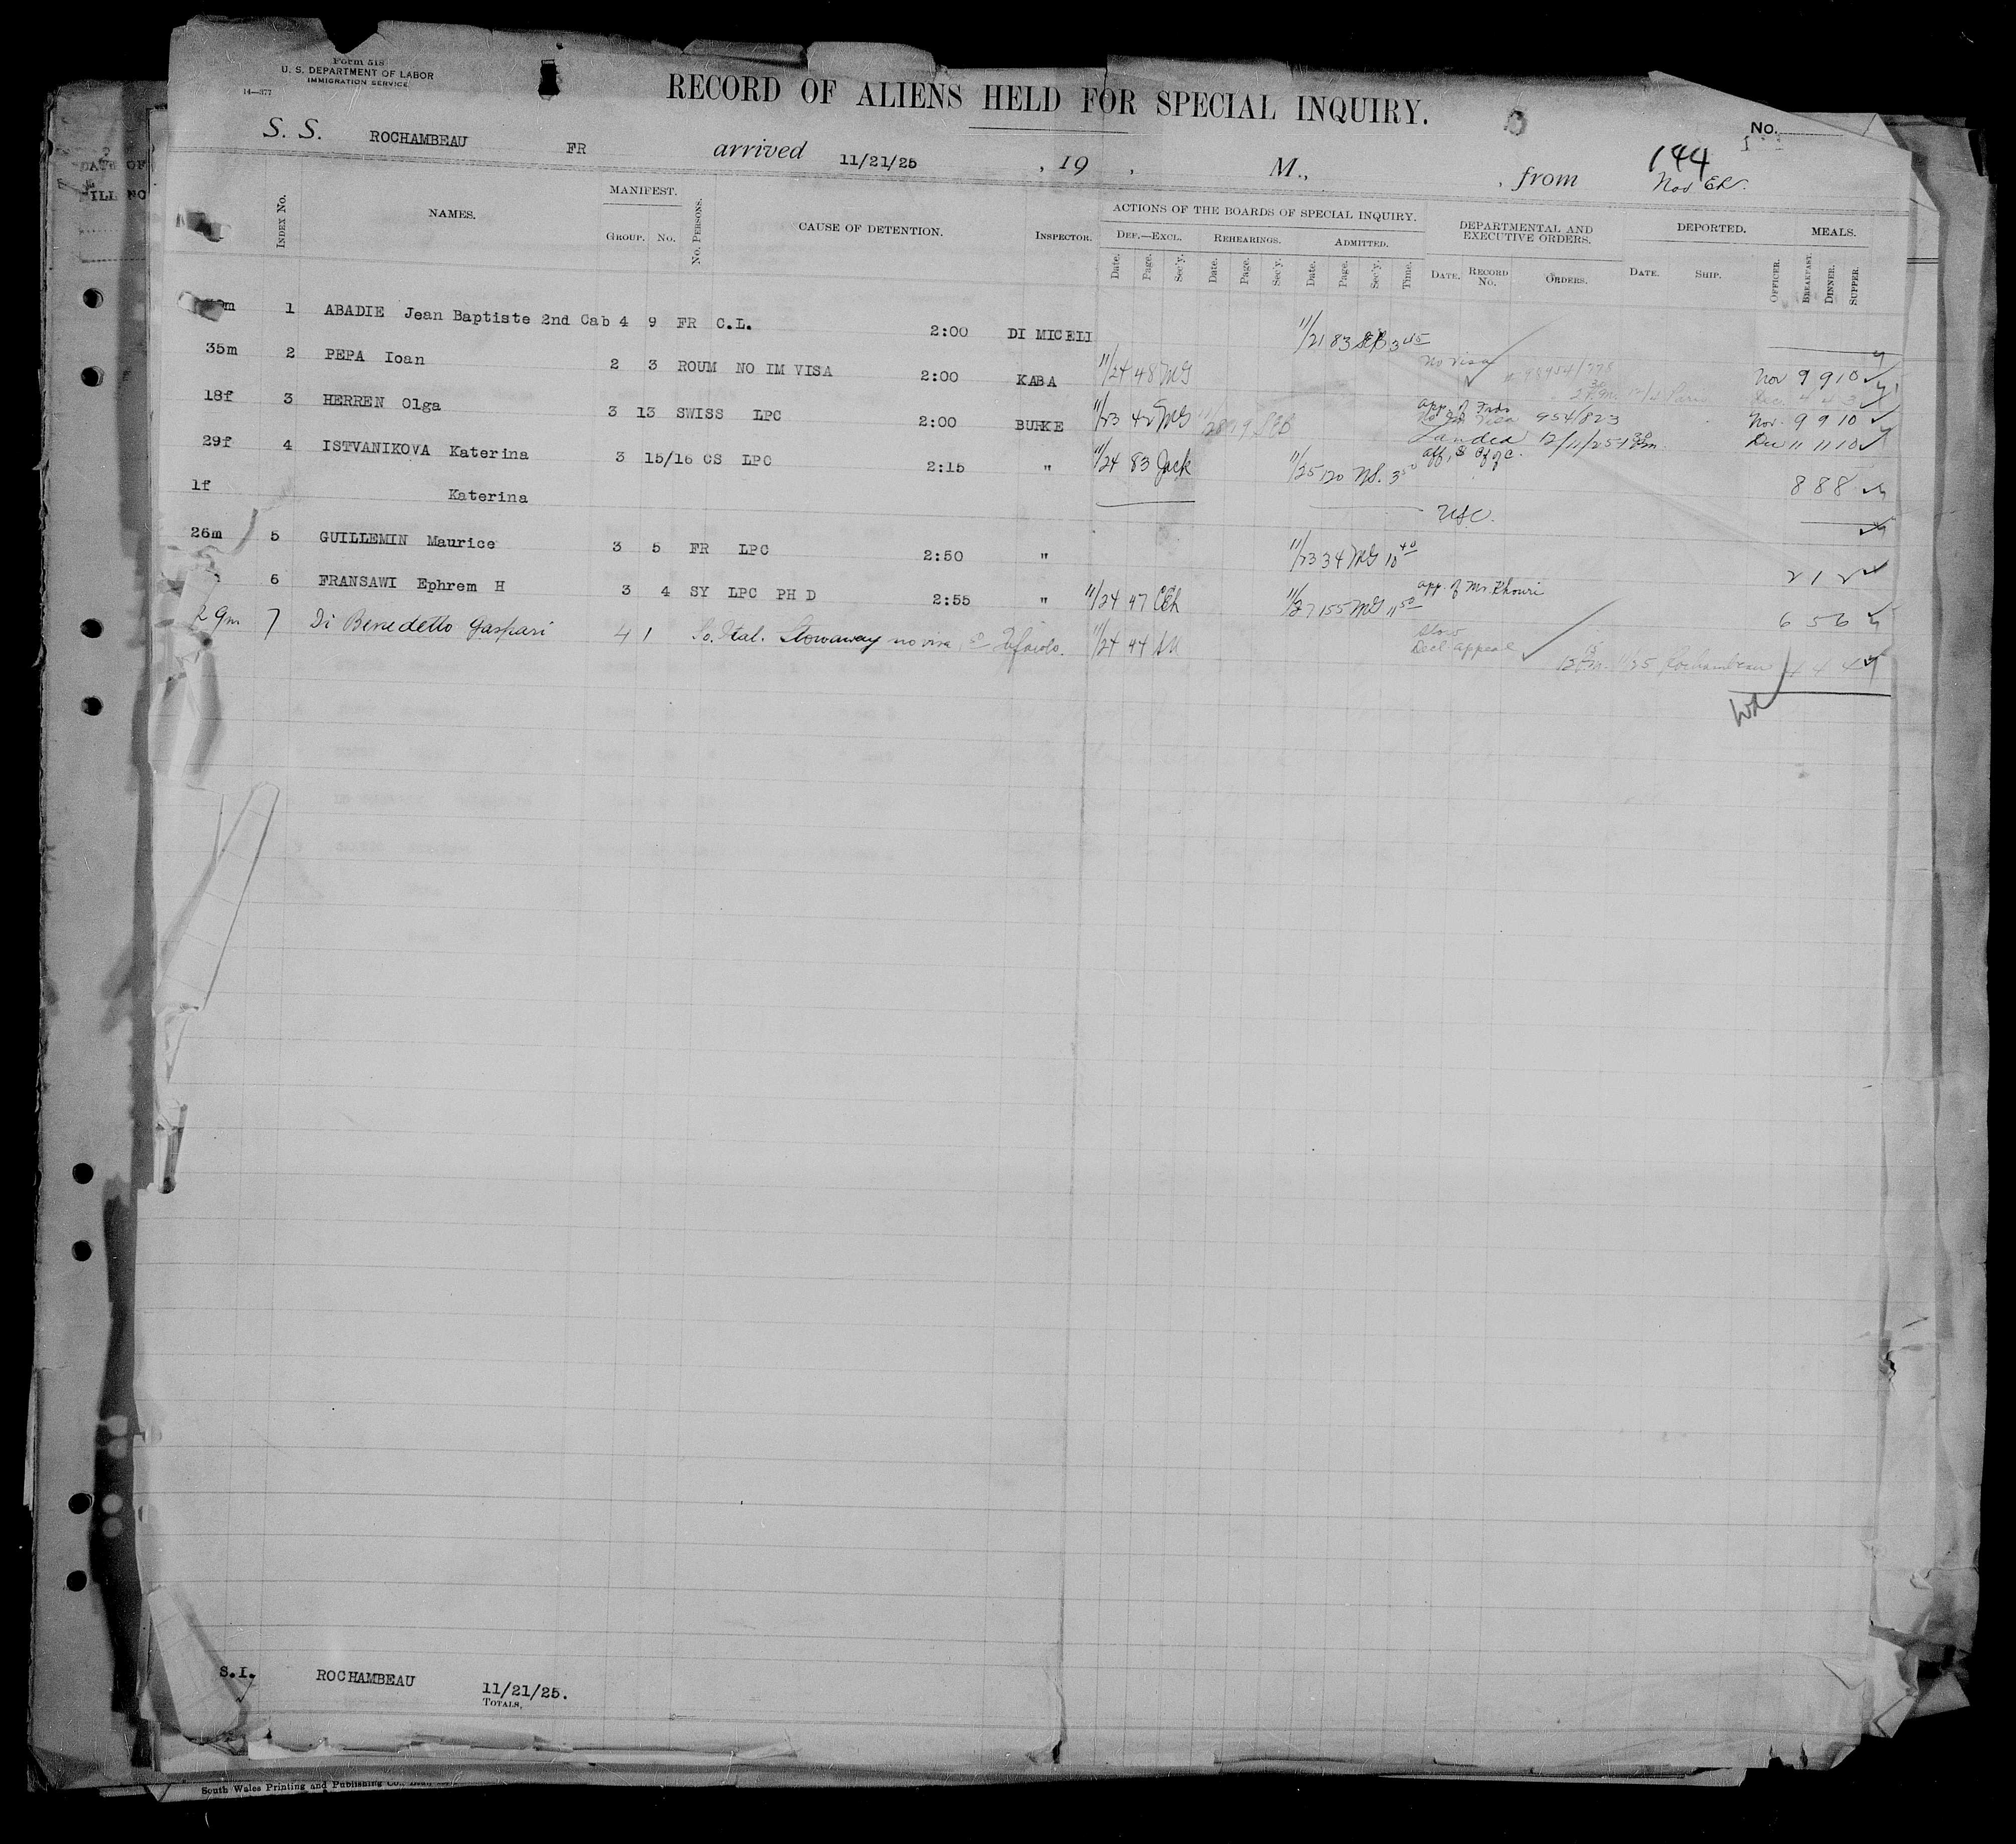 Form 518
U. S. DEPARTMENT OF LABOR
IMMIGRATION SERVICE
14—377
RECORD OF ALIENS HELD FOR SPECIAL INQUIRY.
No.
S. S. ROCHAMBEAU FR arrived 11/21/25 , 19 , M., , from 144
Nov
DATE OF
ILL NO
INDEX No. NAMES. MANIFEST. No. PERSONS. CAUSE OF DETENTION. INSPECTOR. ACTIONS OF THE BOARDS OF SPECIAL INQUIRY. DEPARTMENTAL AND EXECUTIVE ORDERS. DEPORTED. MEALS.
GROUP. No. DEF.—EXCL. REHEARINGS. ADMITTED.
Date. Page. Sec'y. Date. Page. Sec'y. Date. Page. Sec'y. Time. DATE. RECORD No. ORDERS. DATE. SHIP. OFFICER. BREAKFAST. DINNER. SUPPER.
m 1 ABADIE Jean Baptiste 2nd Cab 4 9 FR C.L. 2:00 DI MICELI 11/21 83 3 45
35m 2 PEPA Ioan 2 3 ROUM NO IM VISA 2:00 KABA 11/24 48 MG no visa Nov 9 9 10
Dec. 4 4 3
18f 3 HERREN Olga 3 13 SWISS LPC 2:00 BURKE 11/23 42 MG app. of Frds 954/823 Nov. 9 9 10
Landed 12/11/25 Dec 11 11 10
29f 4 ISTVANIKOVA Katerina 3 15/16 CS LPC 2:15 " 11/24 83 Jack 11/25 120 NS. 3 50 8 8 8
1f Katerina
26m 5 GUILLEMIN Maurice 3 5 FR LPC 2:50 " 11/23 34 MG 10 40 2 1 2
6 FRANSAWI Ephrem H 3 4 SY LPC PH D 2:55 " 11/24 47 11/27 155 MG 11 50 app. of Mr. Khouri 6 5 6
29m 7 Di Benedetto Gaspari 4 1 So. Ital. Stowaway no visa 11/24 44 Stow
Decl. appeal 11/25 Rochambeau 4 4 4
S.I. ROCHAMBEAU 11/21/25.
TOTALS,
South Wales Printing and Publishing Co.